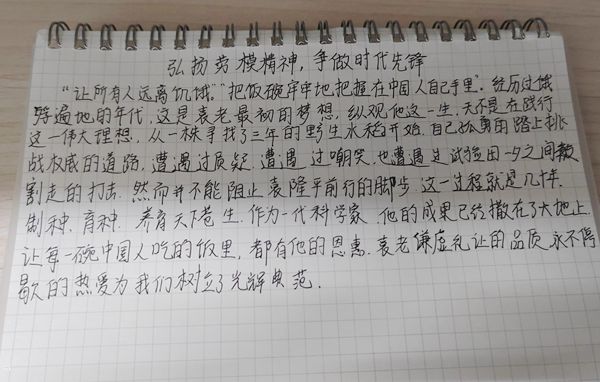 弘扬劳模精神，争做时代先锋
“让所有人远离饥饿”“把饭碗牢牢地把握在中国人自己手里”. 经历过饿
殍遍地的年代, 这是袁老最初的梦想, 纵观他这一生, 无不是在践行
这一伟大理想, 从一株寻找了三年的野生水稻开始, 自己孤勇的踏上挑
战权威的道路, 遭遇过质疑, 遭遇过嘲笑, 也遭遇过试验田一夕之间被
割走的打击. 然而并不能阻止袁隆平前行的脚步. 这一过程就是几十年.
制种, 育种, 养育天下苍生. 作为一代科学家, 他的成果已经撒在了大地上.
让每一碗中国人吃的饭里, 都有他的恩惠. 袁老谦虚礼让的品质, 永不停
歇的热爱为我们树立了光辉典范.